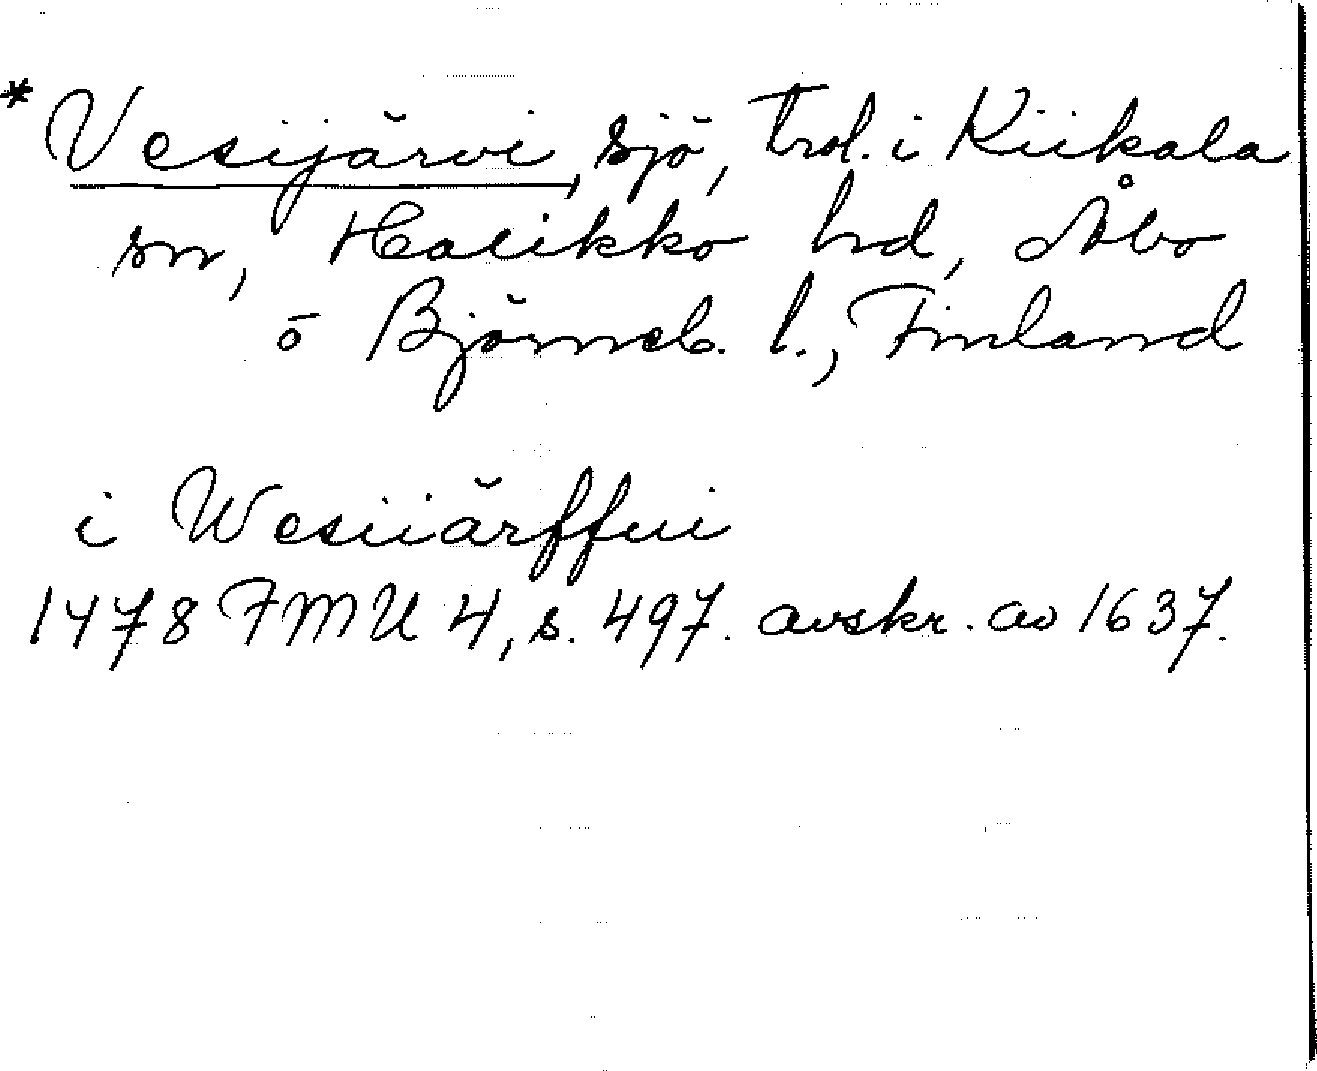 * Vesijärvi, sjö, trol. i Kiikala
sn, Halikko hd, Åbo
o Björneb. l., Finland
i Wesiiärffui
1478 FMU 4, s. 497. avskr. av 1637.